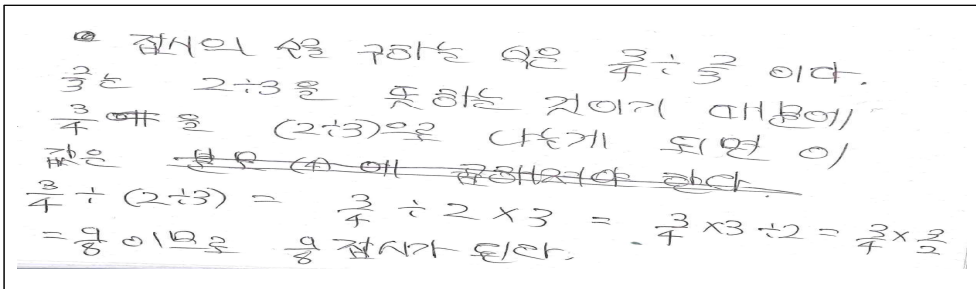 접시의 수를 구하는 식은 3/4 ÷ 2/3 이다.
2/3는 2÷3을 뜻하는 것이기 때문에
3/4 을 (2÷3)으로 나누게 되면 이
값은
3/4 ÷ (2÷3) = 3/4 ÷ 2 × 3 = 3/4 × 3 ÷ 2 = 3/4 × 3/2
= 9/8 이므로 9/8 접시가 된다.